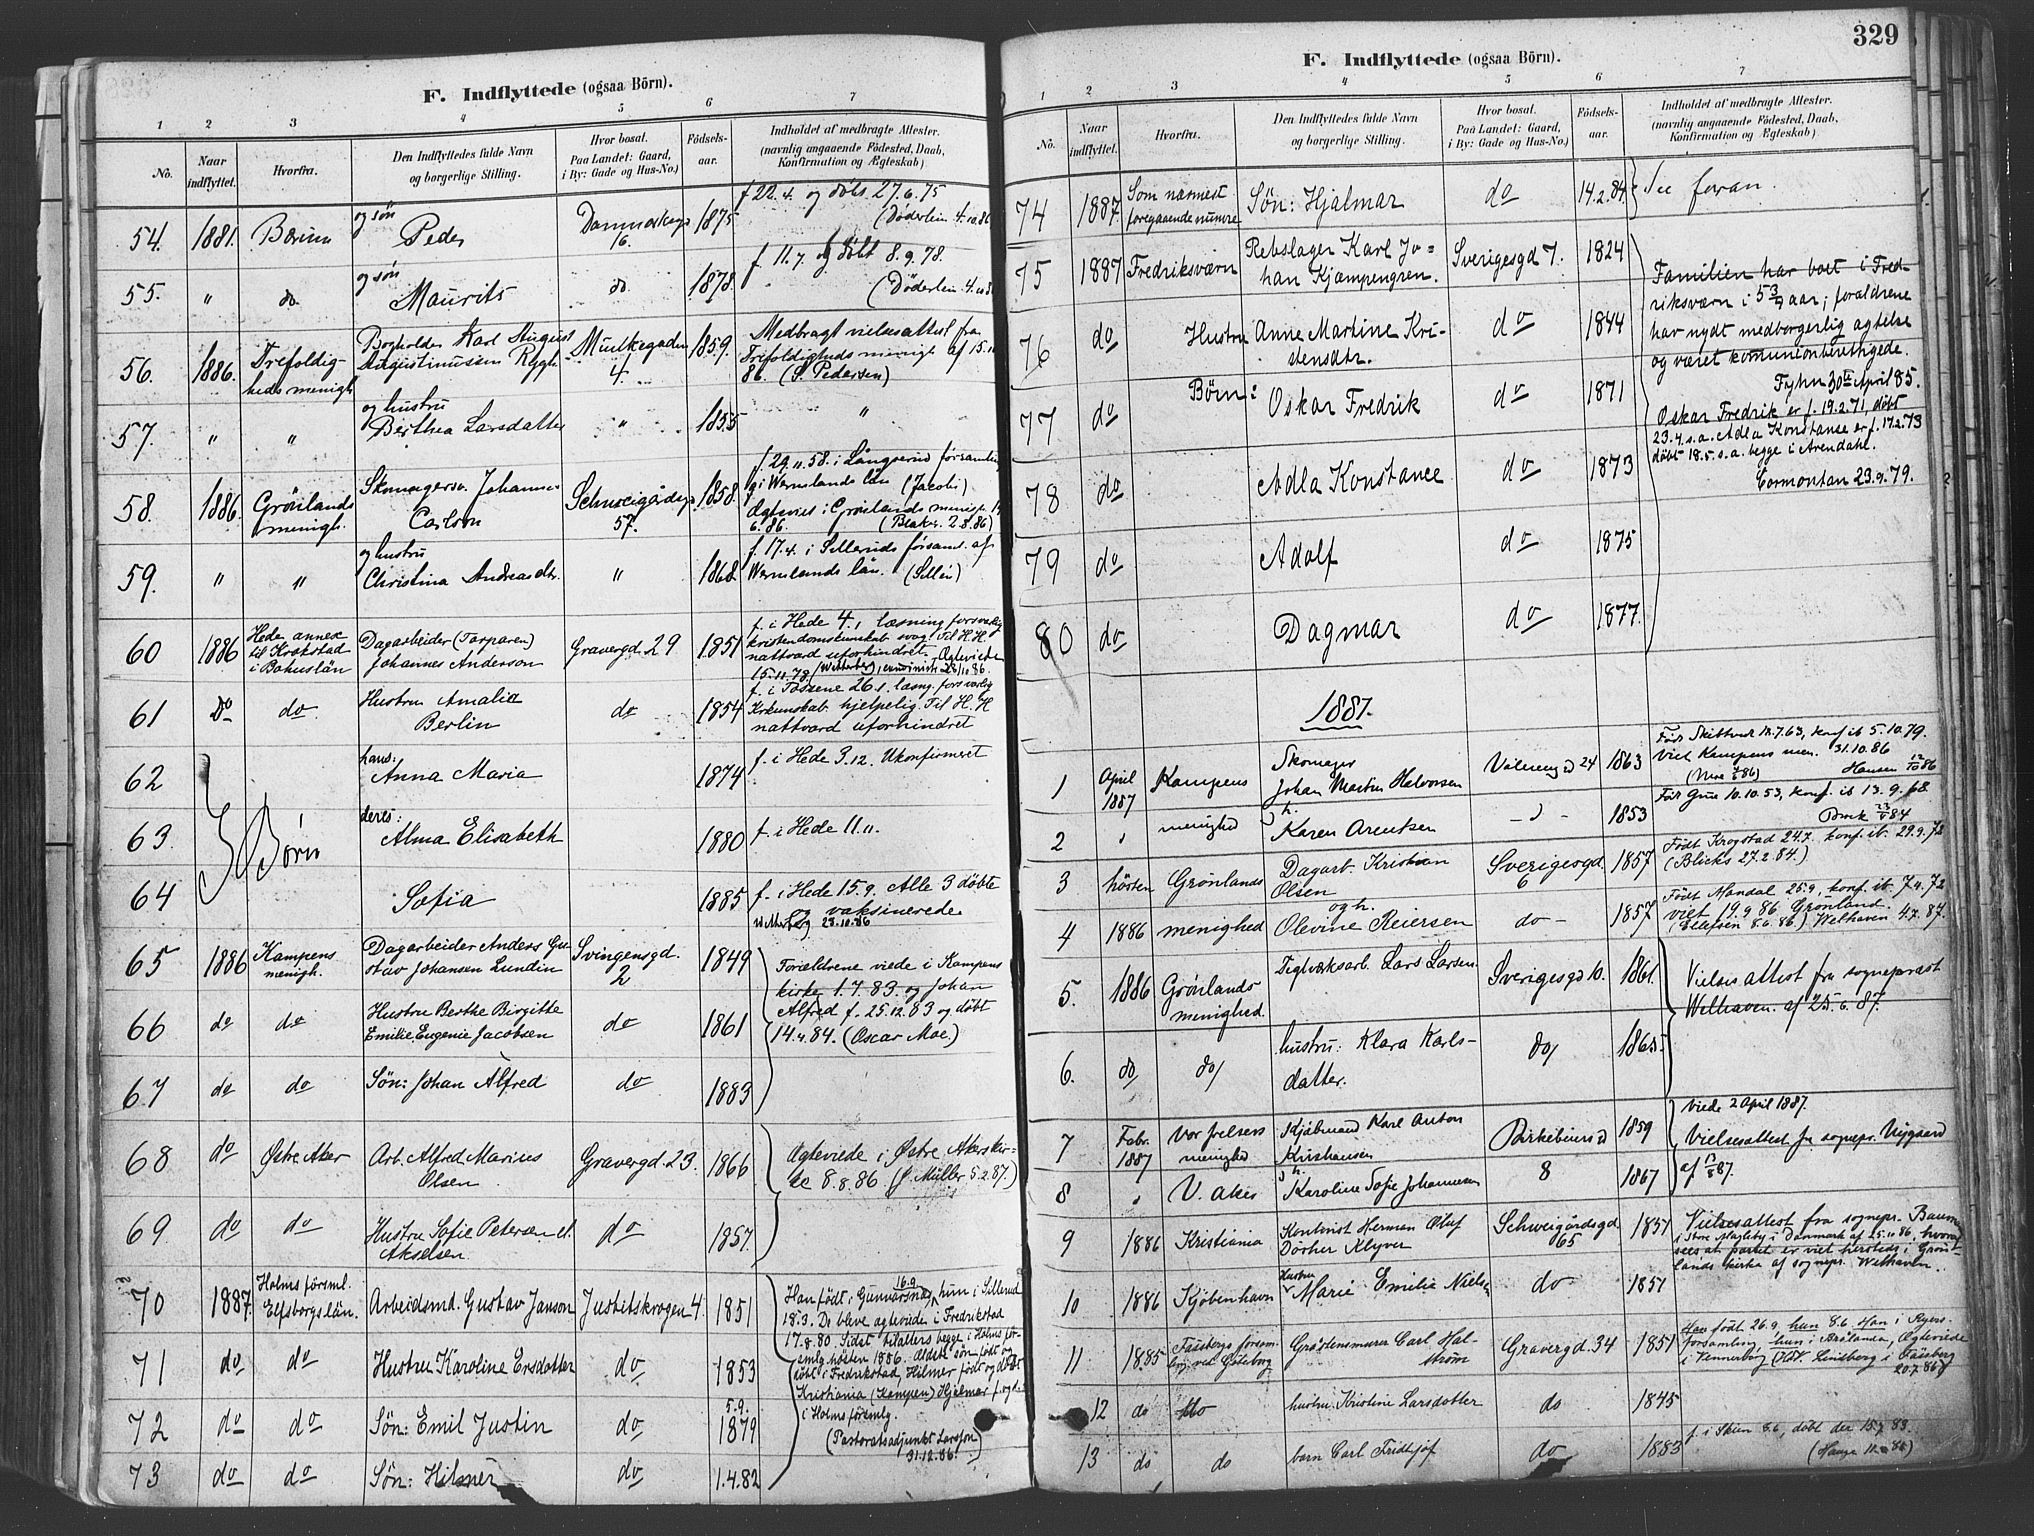 F. Indflyttede (ogsaa Börn).
1 2 3 4 5 6 7
No.
Naar indflyttet.
Hvorfra.
Den Indflyttedes fulde Navn
og borgerlige Stilling.
Hvor bosat.
Paa Landet: Gaard,
i By: Gade og Hus-No.)
Födsels-
aar.
Indholdet af medbragte Attester.
(navnlig angaaende Födested, Daab,
Konfirmation og Ægteskab)
f. 22.4. og döbt 27.6.75
54. 1881. Bærum og søn Peder 16. 1875 (Døderlein 4.10.86
f. 11.7. og døbt 8.9.78.
55. " do og søn Maurits do 1878. (Døderlein 4.10.86
56. 1886. Trefoldig-
heds menigh. Karl August
4. 1859. Medbragt vielsesattest fra
Trefoldigheds menigh. af 15.10
86. (S. Pedersen)
57. " " og hustru
Berthea Larsdatter " 1855 "
58. 1886. Grønlands
menigh. Johannes
Carlson 57. 1858. f. 29.11.58. i
i Wermlands län (Jacobi)
i Grønlands menigh. 14
6.86. 2.8.86)
59. " " og hustru
Christina Andreasdtr. " 1868. f. 17.4. i Sillerids församl. af
Wermlands län. (Sillén)
60 1886 Hede annex
til Krokstad
i Bohuslän Dagarbeider (Torparen)
Johannes Anderson Gravergd. 29 1851 f. i Hede 4., læsning forsvarlig
kristendomskunskab svag Til H.H.
nattvard uforhindret. Ægteviede
15.11.78
61 Do do. Hustru Amalia
Berlin do 1854 f. i Tossene 26.1. læsng. forsvarlig
Krkunskab hjelpelig. Til H. H
nattvard uforhindret
62 Börn hans:
Anna Maria 1874 f. i Hede 3.12. Ukonfirmeret
63. deres:
Alma Elisabeth 1880 f. i Hede 11.11.
64 Sofia 1885 f. i Hede 15.9. Alle 3 døbte
og vaksinerede
23.10.86
65 1886 Kampens
menigh. Dagarbeider Anders Gu-
stav Johansen Lundin Svingensgd.
2 1849 Forældrene viede i Kampens
kirke 1.7.83 og Johan
66 do do Hustru Berthe Birgitte
Emilie Eugenie Jacobsen do 1861 Alfred f. 25.12.83 og døbt
14.4.84. (Oscar Moe.)
67 do do Søn: Johan Alfred do 1883
68 do Østre Aker Arb. Alfred Marius
Olsen Gravergd. 23. 1866 Ægteviede i Østre Akers kir-
ke 8.8.86 (J. Müller 5.2.87.)
69 do do Hustru Sofie Petersen el.
Akselsen. do 1857.
70 1887. Holms församl.
Elfsborgs län. Arbeidsmd. Gustav Janson Justitskrogen 4. 1851 Han født i Gunnarsnæs 16.9., hun i Sillerud
18.3. De bleve ægteviede i Fredrikstad
17.8.80. Sidst
71 do do Hustru Karoline Ersdotter do 1853 høsten 1886. Ældste søn født og
døbt i Fredrikstad, Hilmer født og døbt
Kristiania (Kampen) Hjalmar f. og d.
72 do do Søn: Emil Justin do 5.9.
1879 i Holms församlg.
(Pastoratsadjunkt Larsson)
31.12.86.
73 do do Søn: Hilmer do 1.4.82

329
F. Indflyttede (ogsaa Börn).
1 2 3 4 5 6 7
No.
Naar
indflyttet.
Hvorfra.
Den Indflyttedes fulde Navn
og borgerlige Stilling.
Hvor bosat.
Paa Landet: Gaard,
i By: Gade og Hus-No.)
Födsels-
aar.
Indholdet af medbragte Attester.
(navnlig angaaende Födested, Daab,
Konfirmation og Ægteskab)
74 1887. Som nærmest
foregaaende numre Søn: Hjalmar do 14.2.84 Se foran.
75 1887 Fredriksværn Rebslager Karl Jo-
han Kjæmpengren. Sverigesgd 7. 1824 Familien har boet i Fred-
riksværn i 5 3/4 aar; forældrene
76 do Hustru Anne Martine Kri-
stensdtr. do 1844 har nydt medborgerlig agtelse
og været kommunionberettigede.
Fyhn 30te April 85.
77 do Børn: Oskar Fredrik do 1871 Oskar Fredrik er f. 19.2.71, døbt
23.4. s.a. Adla Konstanse er f. 17.2.73
døbt 18.5. s.a. begge i Arendahl.
78 do Adla Konstance do 1873 Cormontan 23.9.79.
79 do Adolf do 1875
80 do Dagmar do 1877.
1887.
1 April
1887 Kampens
menighed Skomager
Johan Martin Halvorsen 24 1863 Født 12.7.63, konf. ib 5.10.79.
Viet Kampens men. 31.10.86
Hansen 12/10 86
2 " h.
Karen Arentsen -"- 1853 Født Grue 10.10.53, konf. ib 13.9.68.
84
3 høsten Grønlands Dagarb. Kristian
Olsen Sverigesgd.
6 1857 Født Krogstad 24.7. konf. ib. 29.9.72
(Blicks 27.2.84.)
4 1886 menighed og h.
Olevine Reiersen do - 1857 Født Mandal 25.9, konf. ib. 7.4.72
viet 19.9.86 Grønland.
(Ellefsen 8.6.86.) Welhaven 4.7.87.
5. 1886 Grønlands
menighed. Teglværksarb. Lars Larsen. Sverigesgd 10. 1861. Vielsesattest fra sogneprest
Welhaven. af 25.6.87.
6. do do/ hustru: Klara Karls-
datter. do/
7 Febr.
1887 Vor frelsers
menighed Karl Anton
Kristiansen 1859 Viede 2 April 1887.
Vielsesattest fra sognepr. Nygaard
8 " V. Aker h.
Karoline Sofie Johannesen 8 1867 87.
9 1886 Kristiania Kontorist Herman Oluf
Klyver Schweigårdsgd
65 Vielsesattest fra sognepr.
i Store Magleby i Danmark af 25.10.86, hvoraf
sees at parret er viet hersteds i Grøn-
lands kirke af sognepr. Welhaven.
10 1886 Kjøbenhavn Hustru
Marie Emilie Nielsen do
11 1885 ved Göteborg Carl Hal-
strøm Gravergd. 34 1851 Han født 26.9. hun 8.6. Han i Ryers
forsamling, hun i Brålanda, Ægteviede
i Vennersborg Lindberg i
20.7.86)
12 do do hustru Kristine Larsdotter do 1845
13 do do barn Carl Fridtjof do 1883 f. i Skien 8.6., døbt der 83.